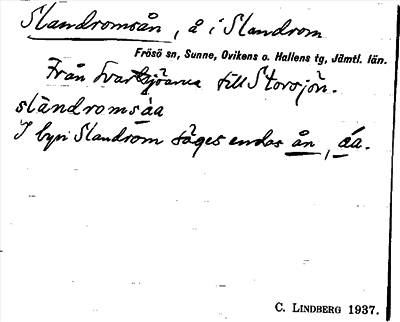 Slandromsån, å i Slandrom
Frösö sn, Sunne, Ovikens o. Hallens tg, Jämtl. län.
Från Svartsjöarna till Storsjön.
slándromsá̱a
I byn Slandrom säges endas ån, áa.
C. LINDBERG 1937.